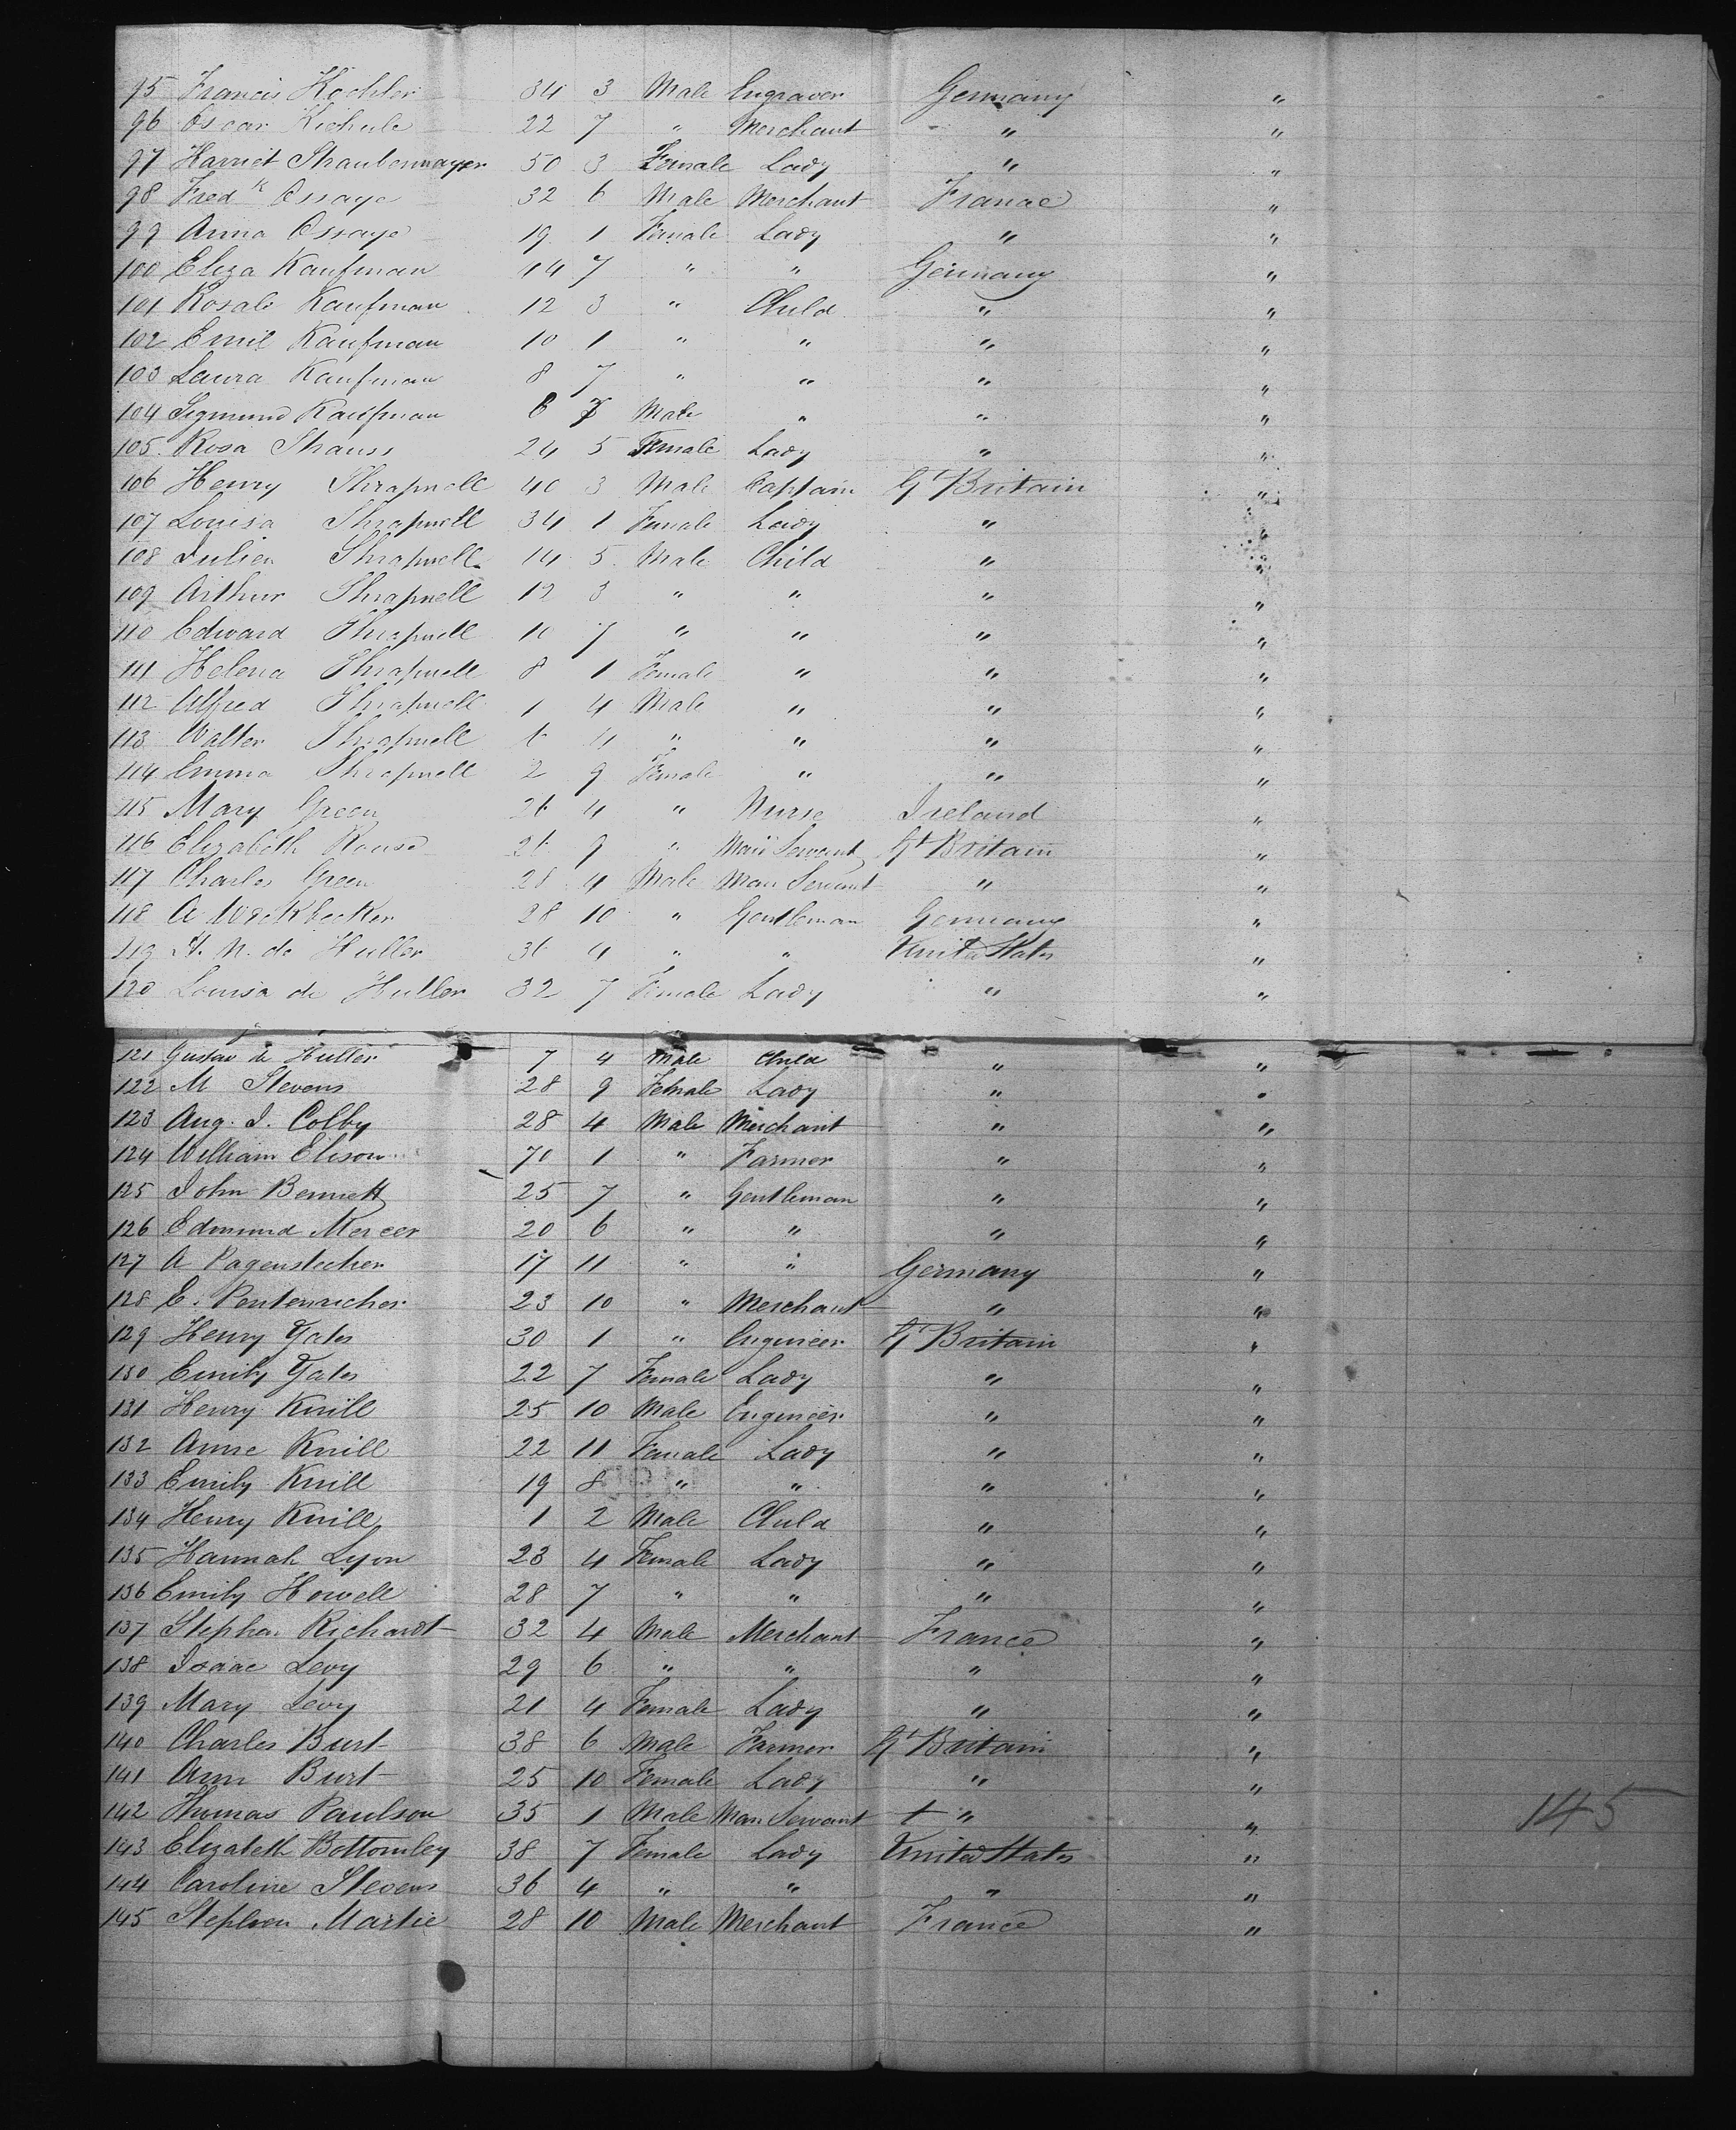 95 Francis Kochler 34 3 Male Engraver Germany "
96 Oscar Kichule 22 7 " Merchant " "
97 Harriet Straubenmayer 50 3 Female Lady " "
98 Fred k Ossaye 32 6 Male Merchant France "
99 Anna Ossaye 19 1 Female Lady " "
100 Eliza Kaufman 44 7 " " Germany "
101 Rosale Kaufman 12 3 " Child " "
102 Emil Kaufman 10 1 " " " "
103 Laura Kaufman 8 7 " " " "
104 Sigmund Kaufman 6 Male " " "
105 Rosa Strauss 24 5 Female Lady " "
106 Henry Shrapnell 40 3 Male Captain Gt Britain "
107 Louisa Shrapnell 34 1 Female Lady " "
108 Julien Shrapnell 14 5 Male Child " "
109 Arthur Shrapnell 12 3 " " " "
110 Edward Shrapnell 10 7 " " " "
111 Helena Shrapnell 8 1 Female " " "
112 Alfred Shrapnell 1 4 Male " " "
113 Walter Shrapnell 6 4 " " " "
114 Emma Shrapnell 2 9 Female " " "
115 Mary Green 26 4 " Nurse Ireland "
116 Elizabeth Rouse 26 9 " Maid Servant Gt Britain "
117 Charles Green 28 4 Male Man Servant " "
118 A 28 10 " Gentleman Germany "
119 H. N. de Hutler 36 4 " " United States "
120 Louisa de Hutler 32 7 Female Lady " "
121 Gustav de Hutler 7 4 Male Child " "
122 M Stevens 28 9 Female Lady " "
123 Aug. J. Colby 28 4 Male Merchant " "
124 William Elison 70 1 " Farmer " "
125 John Bennett 25 7 " Gentleman " "
126 Edmund Mercer 20 6 " " " "
127 A Pagenstecher 17 11 " " Germany "
128 E. 23 10 " Merchant " "
129 Henry Yates 30 1 " Engineer Gt Britain "
130 Emily Yates 22 7 Female Lady " "
131 Henry Knill 25 10 Male Engineer " "
132 Anne Knill 22 11 Female Lady " "
133 Emily Knill 19 8 " " " "
134 Henry Knill 1 2 Male Child " "
135 Hannah Lyon 23 4 Female Lady " "
136 Emily Howell 28 7 " " " "
137 Stephen Richardt 32 4 Male Merchant France "
138 Isaac Levy 29 6 " " " "
139 Mary Levy 21 4 Female Lady " "
140 Charles Burt 38 6 Male Farmer Gt Britain "
141 Ann Burt 25 10 Female Lady " "
142 Thomas Paulson 35 1 Male Man Servant + " " 145
143 Elizabeth Bottomley 38 7 Female Lady United States "
144 Caroline Stevens 36 4 " " " "
145 Stephen Martie 28 10 Male Merchant France "